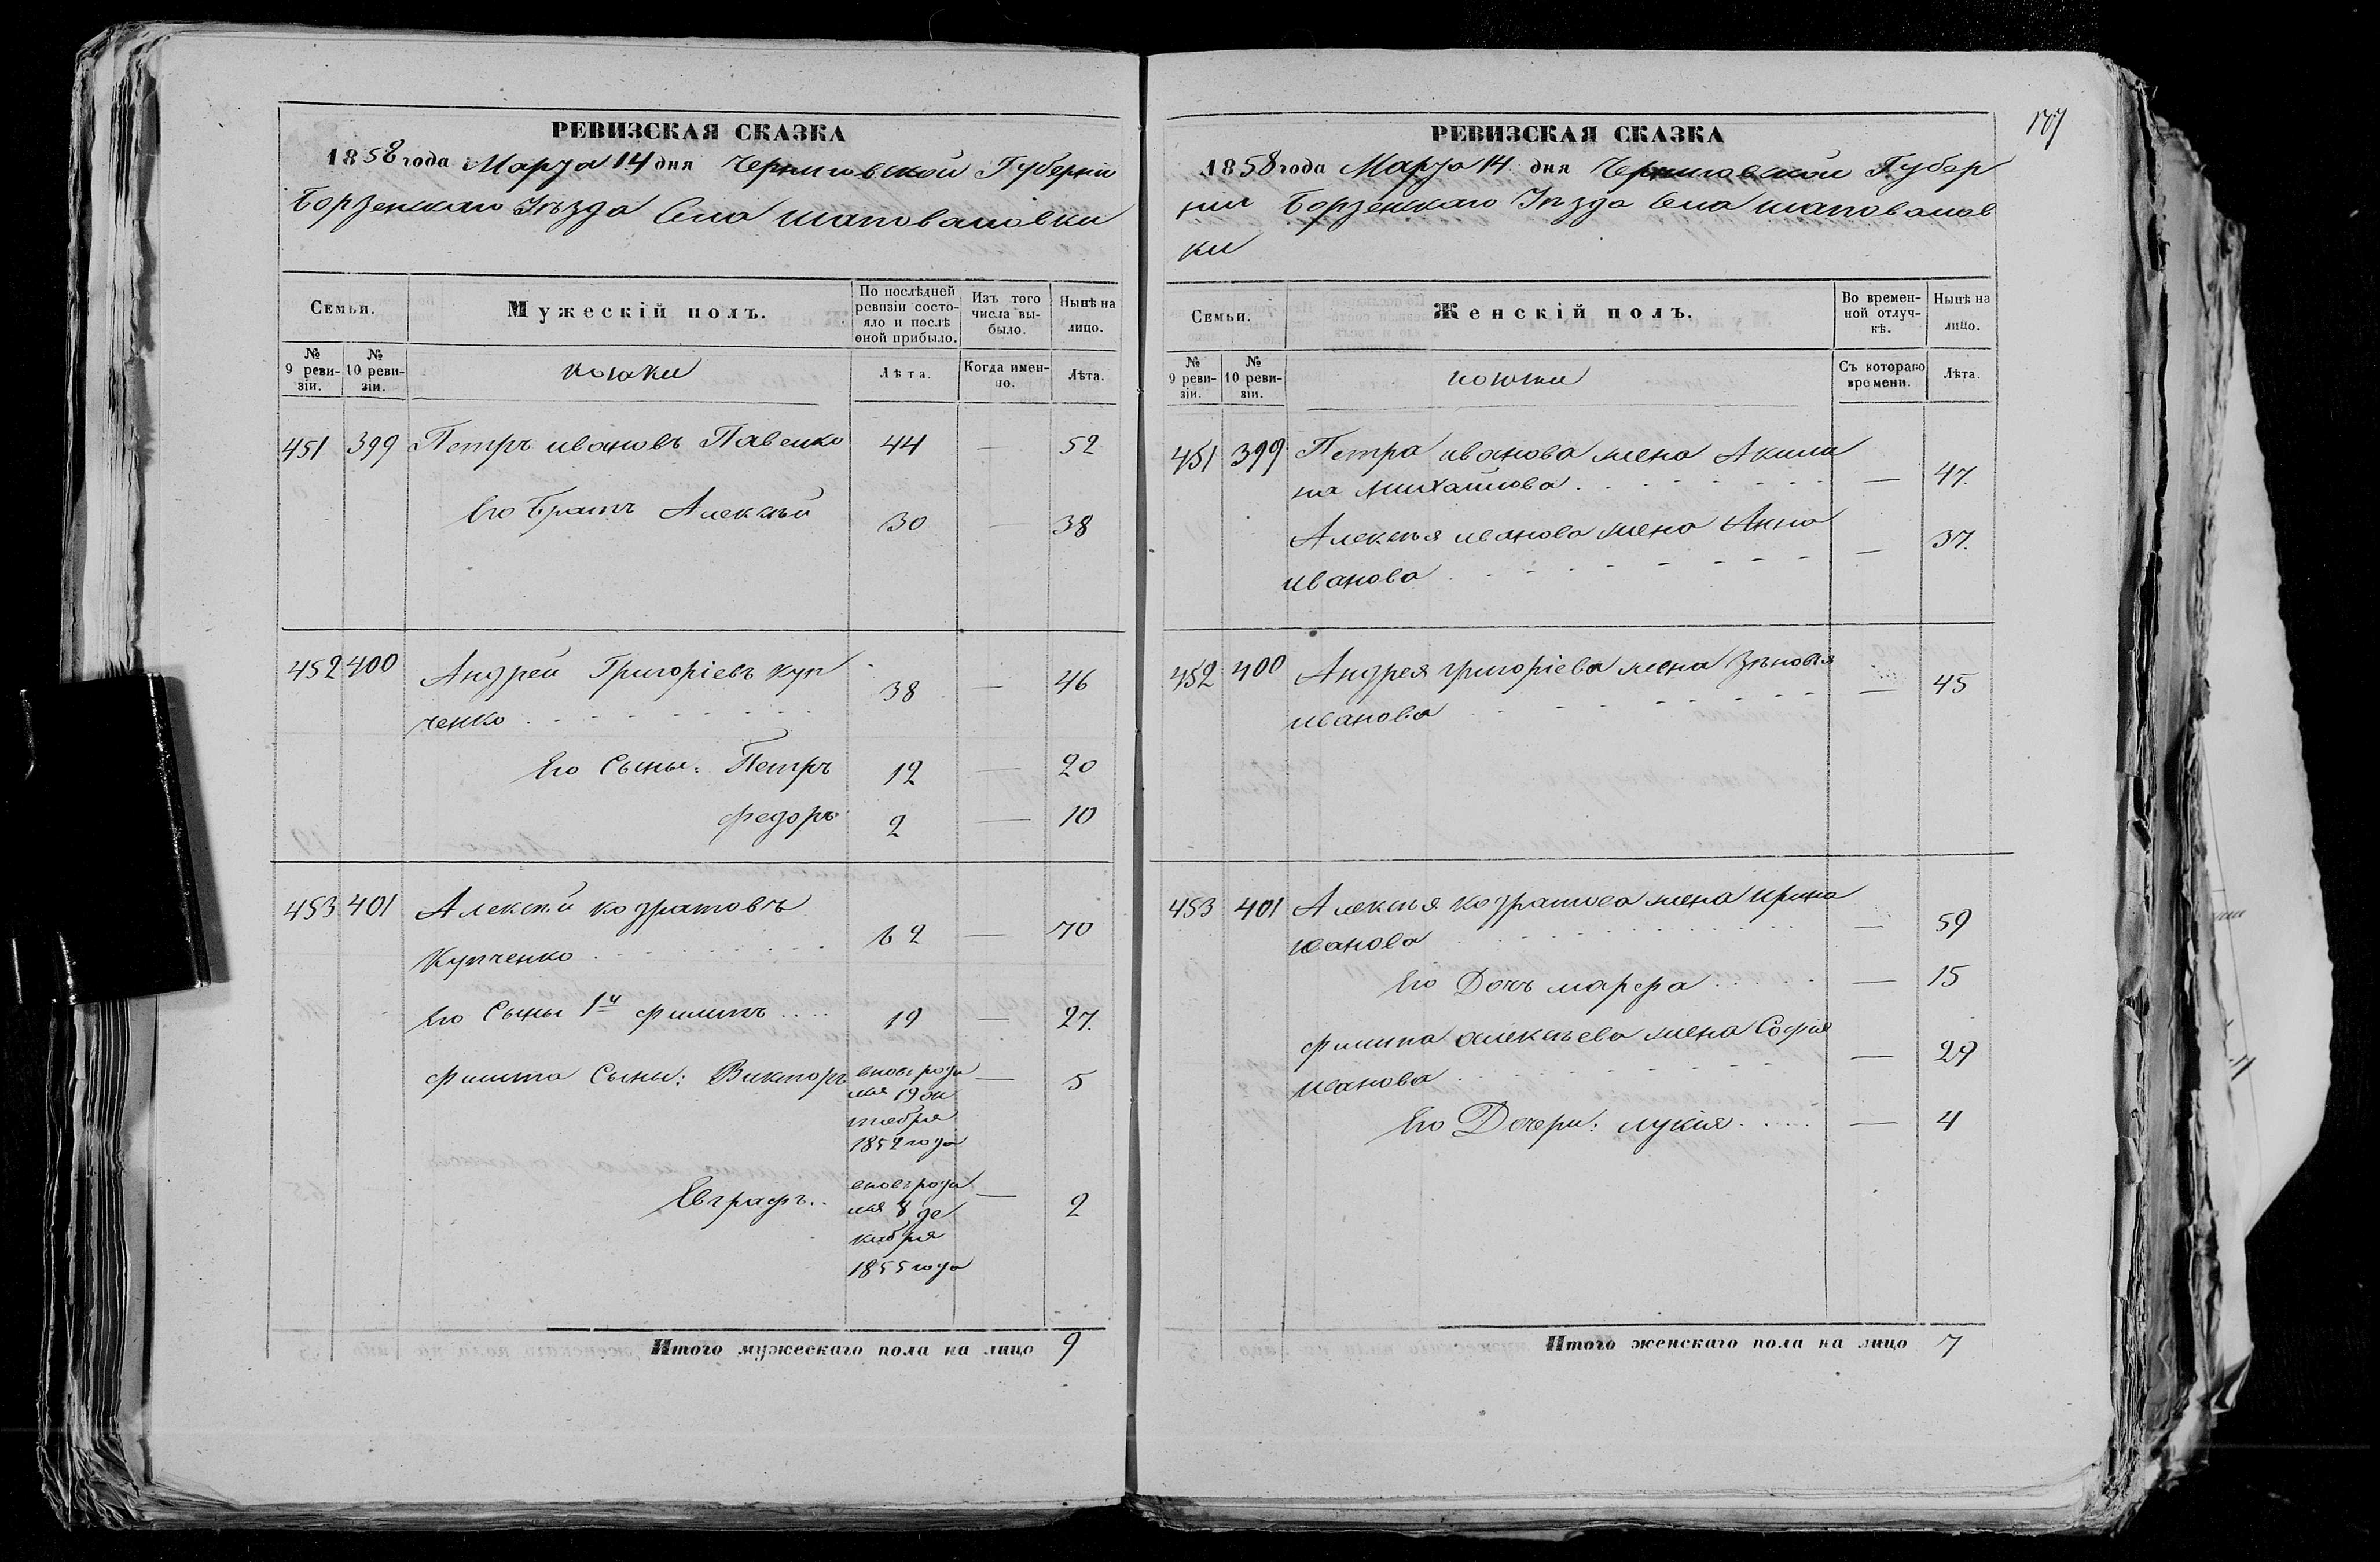 РЕВИЗСКАЯ СКАЗКА
1858 года Марта 14 дня Черниговской Губерніи
Борзенскаго Уѣзда Села шаповаловки
Семьи.
Мужескій полъ.
По послѣдней ревизіи состояло и послѣ оной прибыло.
Изъ того числа выбыло.
Нынѣ на лицо.
№ 9 ревизіи.
№ 10 ревизіи.
Лѣта.
Когда именно.
Лѣта.
451 399 Петръ ивановъ Павенко 44 — 52
Его Братъ Алексѣй 30 — 38
452 400 Андрей Григоріевъ куп
ченко 38 — 46
Его Сыны: Петръ 12 — 20
федоръ 2 — 10
453 401 Алексѣй кодратовъ
Купченко 62 — 70
Его Сыны 1й филипъ 19 — 27.
филипа Сыны: Викторъ вновь роди — 5
лся 19 ок
тября
1852 года
Евграфъ вновь роди — 2
лся 8 де
кабря
1855 года
Итого мужескаго пола на лицо 9
РЕВИЗСКАЯ СКАЗКА
1858 года Марта 14 дня Черниговской Губер
ніи Борзенскаго Уѣзда Села шаповалов
ки
Семьи.
Женскій полъ.
Во временной отлучкѣ.
Нынѣ на лицо.
№ 9 ревизіи.
№ 10 ревизіи.
Съ котораго времени.
Лѣта.
451 399 Петра иванова жена Акили
на михайлова — 47.
Алексѣя иванова жена Анна
иванова — 37.
452 400 Андрея григоріева жена Зѣновія
иванова — 45
453 401 Алексѣя кодратова жена ирина
иванова — 59
Его Дочь марфа — 15
филипа алексѣева жена Софія
иванова — 29
Его Дочери: лукія — 4
Итого женскаго пола на лицо 7